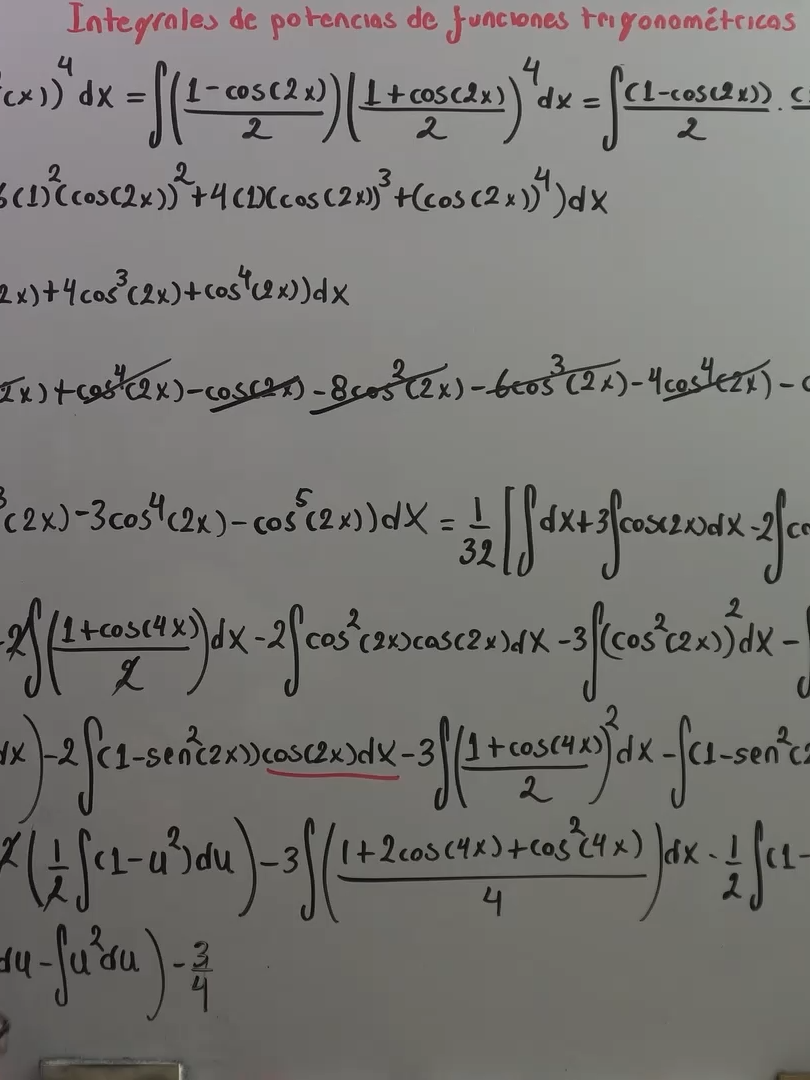 Integrales de potencias de funciones trigonométricas
(x))^4 dx = ∫((1-cos(2x))/2)((1+cos(2x))/2)^4 dx = ∫(1-cos(2x))/2 · (
6(1)^2(cos(2x))^2+4(1)(cos(2x))^3+(cos(2x))^4)dx
2x)+4cos^3(2x)+cos^4(2x))dx
2x)+cos^4(2x)-cos(2x)-8cos^2(2x)-6cos^3(2x)-4cos^4(2x)-c
3(2x)-3cos^4(2x)-cos^5(2x))dx = 1/32[∫dx+3∫cos(2x)dx-2∫co
-2∫((1+cos(4x))/2)dx-2∫cos^2(2x)cos(2x)dx-3∫(cos^2(2x))^2dx-∫
dx)-2∫(1-sen^2(2x))cos(2x)dx-3∫((1+cos(4x))/2)^2dx-∫(1-sen^2(2
2(1/2∫(1-u^2)du)-3∫((1+2cos(4x)+cos^2(4x))/4)dx-1/2∫(1-
du-∫u^2du)-3/4